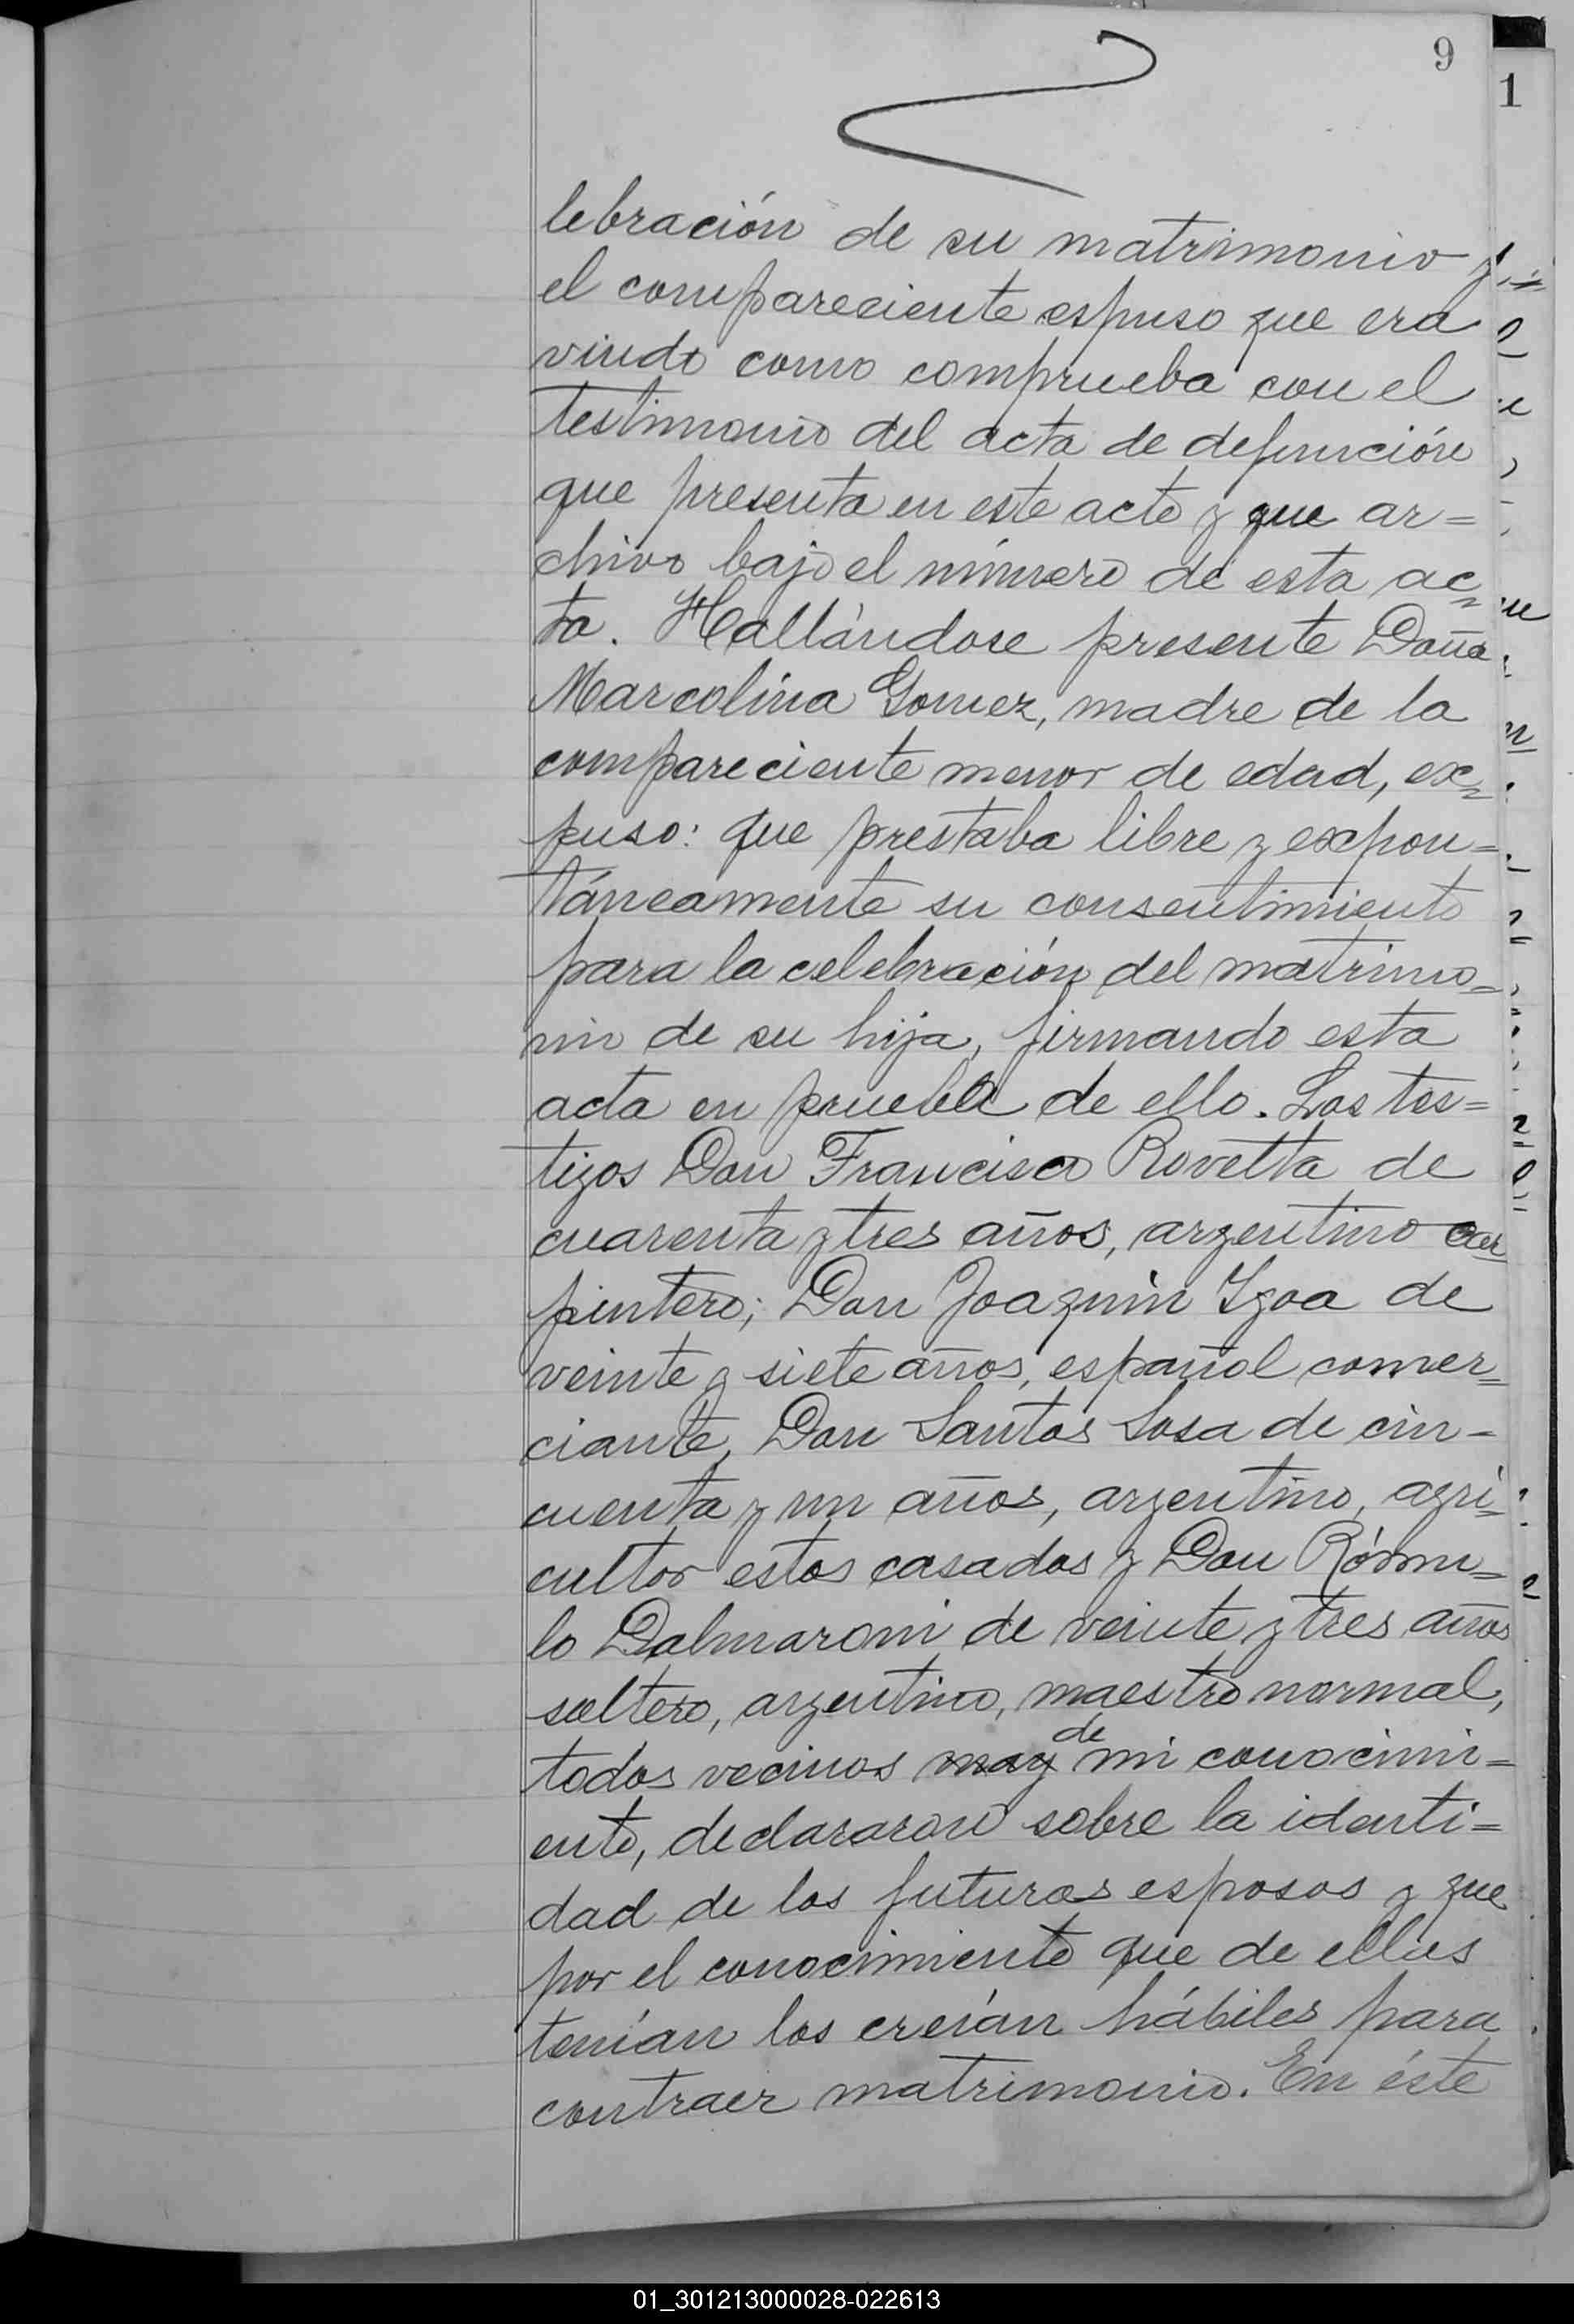 9
1
lebración de su matrimonio y
el compareciente espuso que era
viudo como comprueba con el
testimonio del acta de defunción
que presenta en este acto y que ar=
chivo bajo el número de esta ac=
ta. Hallándose presente Doña
Marcolina Gomez, madre de la
compareciente menor de edad, ex=
puso: que prestaba libre y expon=
táneamente su consentimiento
para la celebración del matrimo=
nio de su hija, firmando esta
acta en prueba de ello. Los tes=
tigos Don Francisco Rovetta de
cuarenta y tres años, argentino car=
pintero; Don Joaquin Ygoa de
veinte y siete años, español comer=
ciante, Don Santos Sosa de cin-
cuenta y un años, argentino, agri=
cultor estos casados y Don Rómu=
lo Dalmaroni de veinte y tres años
soltero, argentino, maestro normal,
todos vecinos de mi conocimi=
ento, declararon sobre la identi=
dad de los futuros esposos y que
por el conocimiento que de ellos
tenían los creían hábiles para
contraer matrimonio. En éste
01_301213000028-022613